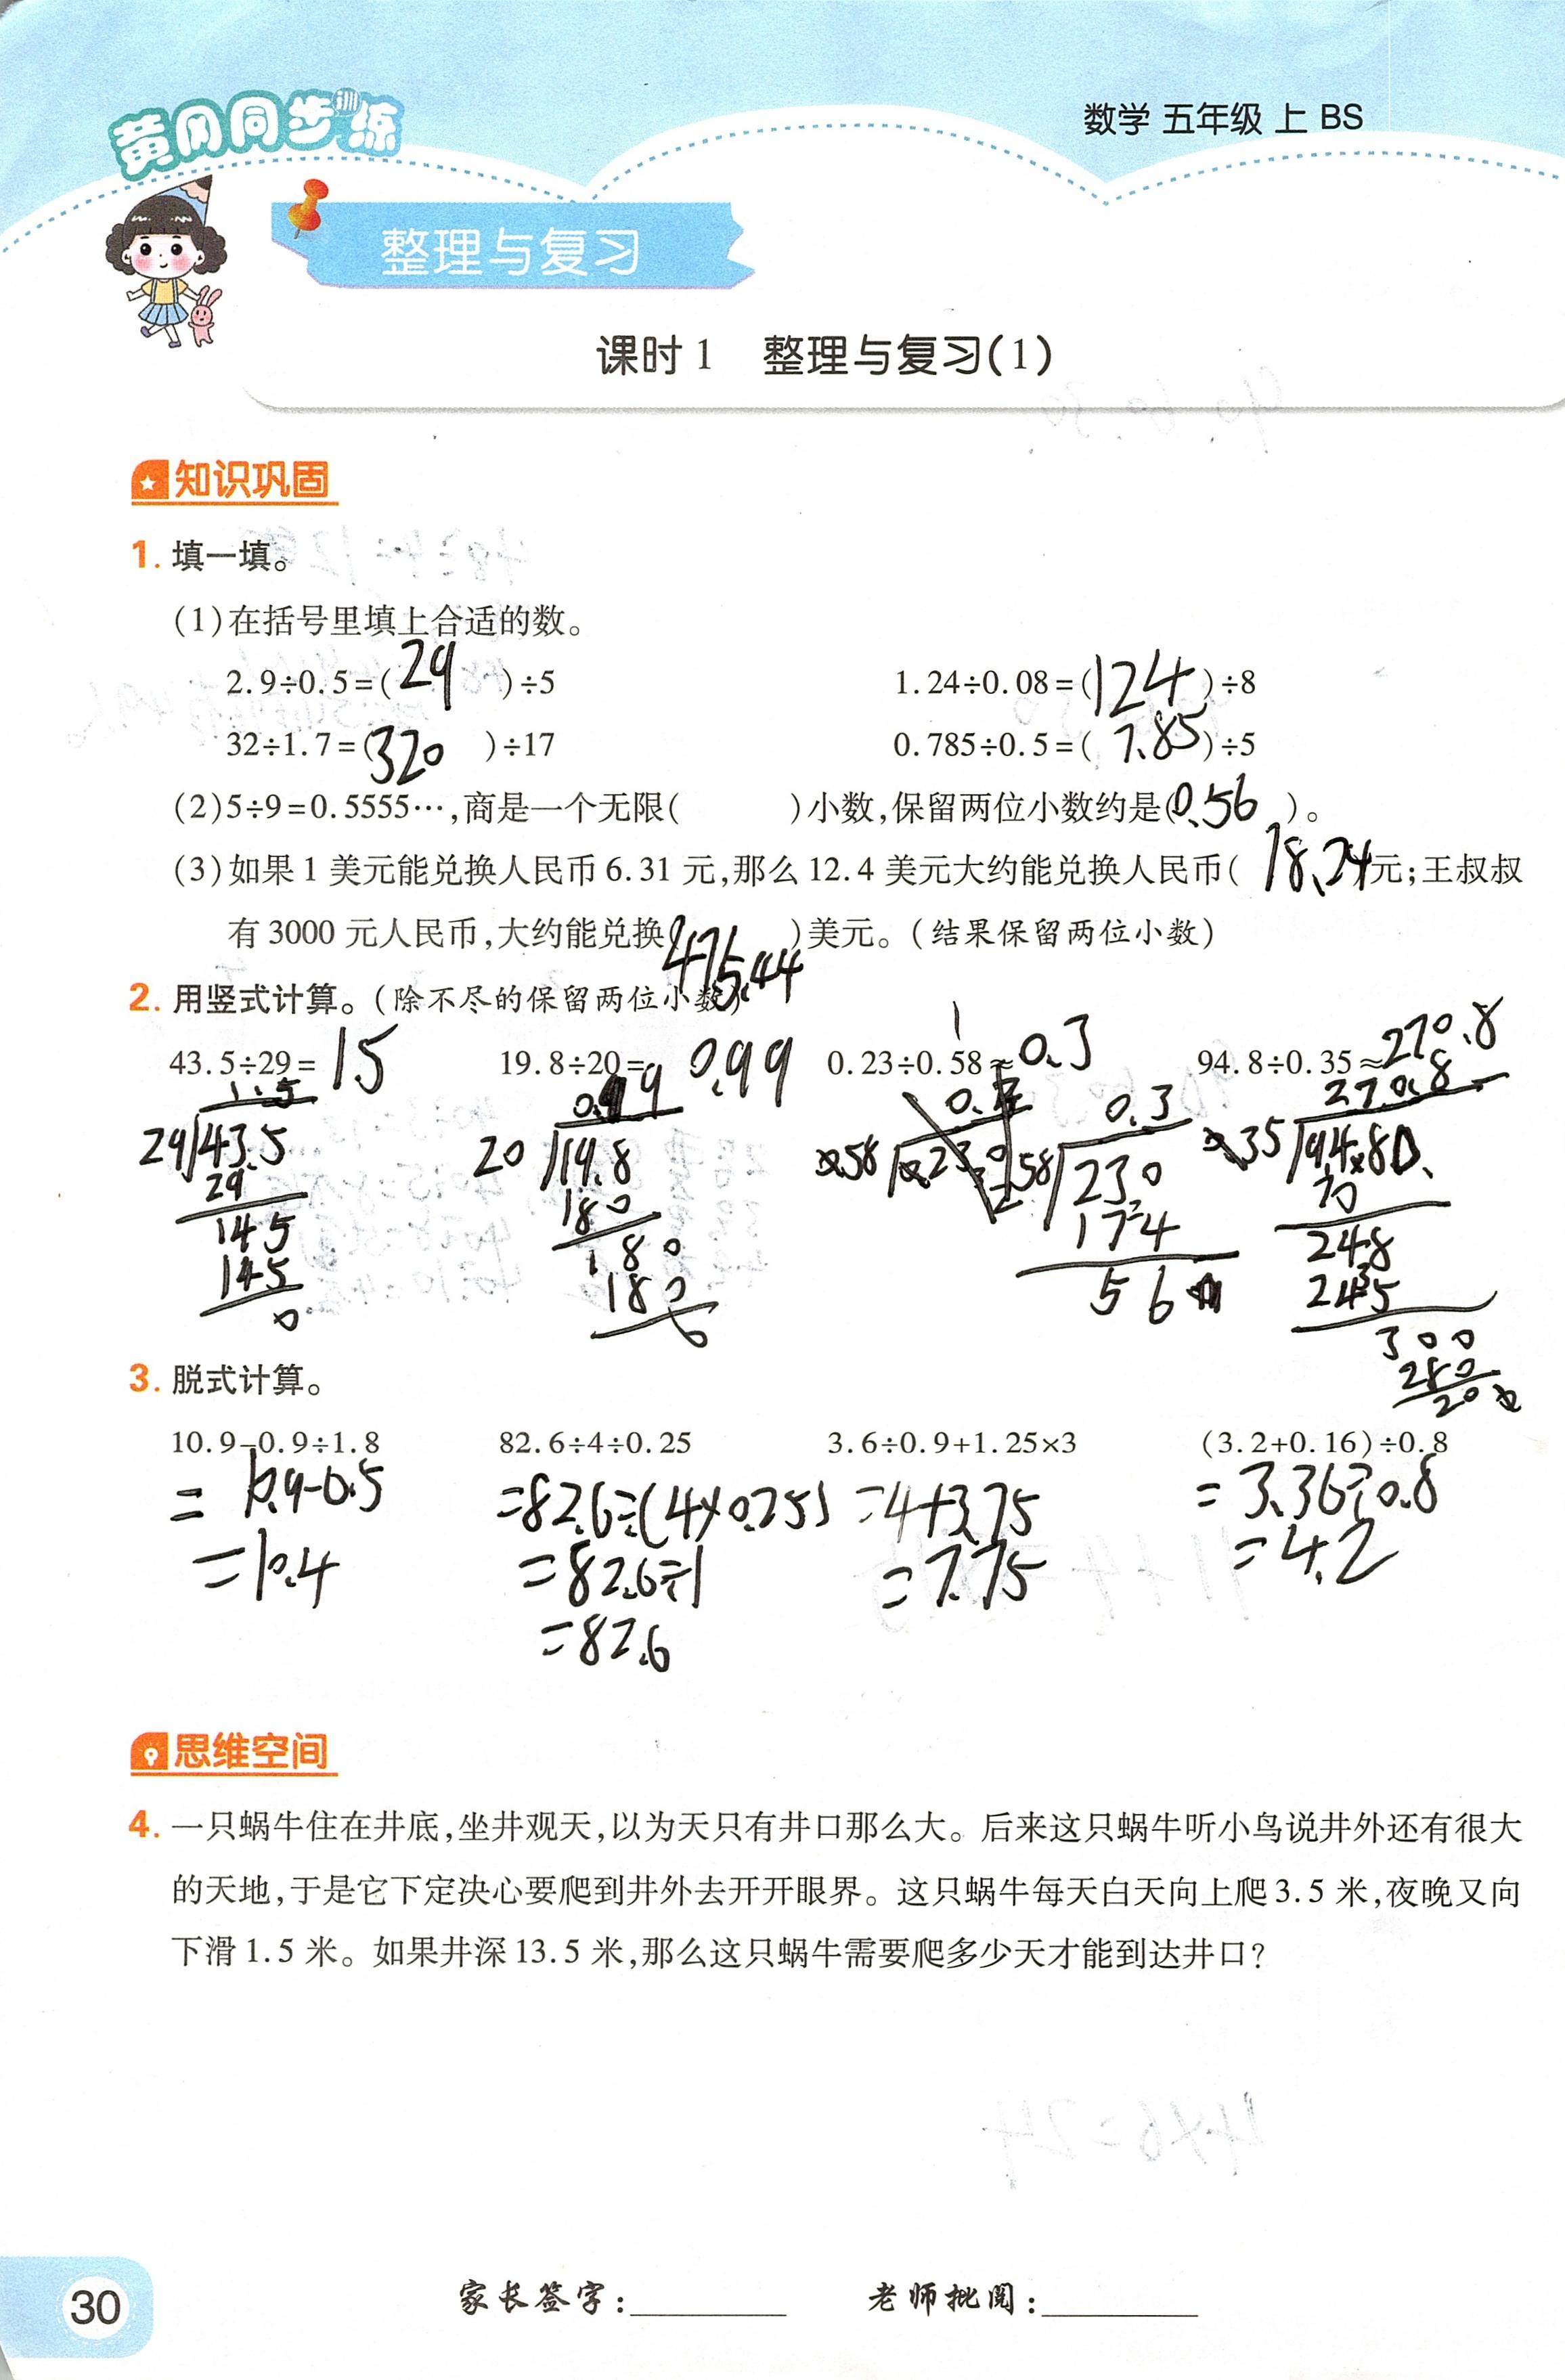 黄冈同步训练
数学 五年级 上 BS
整理与复习
课时1 整理与复习(1)
知识巩固
1. 填一填。
(1)在括号里填上合适的数。
2.9÷0.5=( 29 )÷5 1.24÷0.08=( 124 )÷8
32÷1.7=( 320 )÷17 0.785÷0.5=( 7.85 )÷5
(2)5÷9=0.5555…,商是一个无限( )小数,保留两位小数约是( 0.56 )。
(3)如果1美元能兑换人民币6.31元,那么12.4美元大约能兑换人民币( 78.24 )元;王叔叔
有3000元人民币,大约能兑换( 475.44 )美元。(结果保留两位小数)
2. 用竖式计算。(除不尽的保留两位小数)
43.5÷29= 1.5 19.8÷20= 0.99 0.23÷0.58≈ 0.3 94.8÷0.35≈ 270.8
1.5 0.99 0.3 270.8
29 43.5 20 19.8 0.58 0.230 58 230 0.35 94.80
29 180 174 70
145 180 56 248
145 180 245
0 0 300
280
20
3. 脱式计算。
10.9-0.9÷1.8 82.6÷4÷0.25 3.6÷0.9+1.25×3 (3.2+0.16)÷0.8
= 10.9-0.5 =82.6÷(4×0.25) =4+3.75 = 3.36÷0.8
=10.4 =82.6÷1 =7.75 =4.2
=82.6
思维空间
4. 一只蜗牛住在井底,坐井观天,以为天只有井口那么大。后来这只蜗牛听小鸟说井外还有很大
的天地,于是它下定决心要爬到井外去开开眼界。这只蜗牛每天白天向上爬3.5米,夜晚又向
下滑1.5米。如果井深13.5米,那么这只蜗牛需要爬多少天才能到达井口?
30
家长签字:________ 老师批阅:________